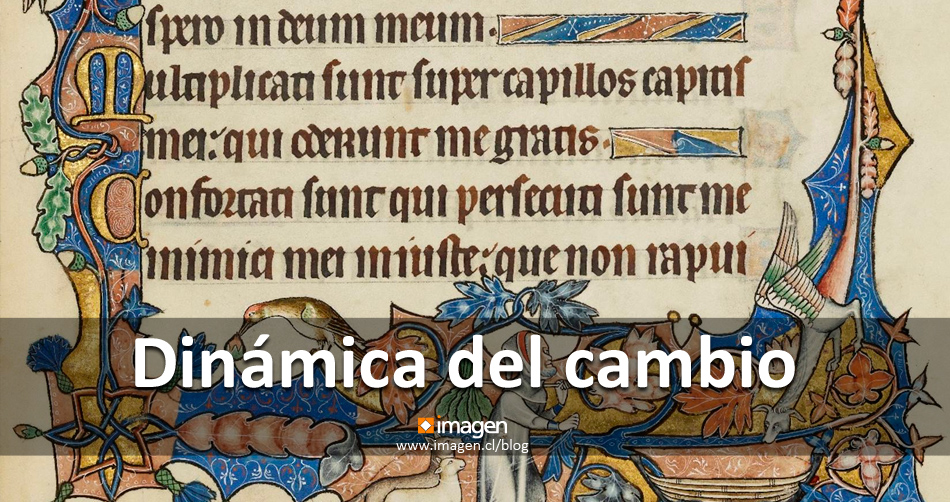 spero in deum meum.
Multiplicati sunt super capillos capitis
mei: qui oderunt me gratis.
Confortati sunt qui persecuti sunt me
inimici mei iniuste: que non rapui
Dinámica del cambio
imagen
www.imagen.cl/blog